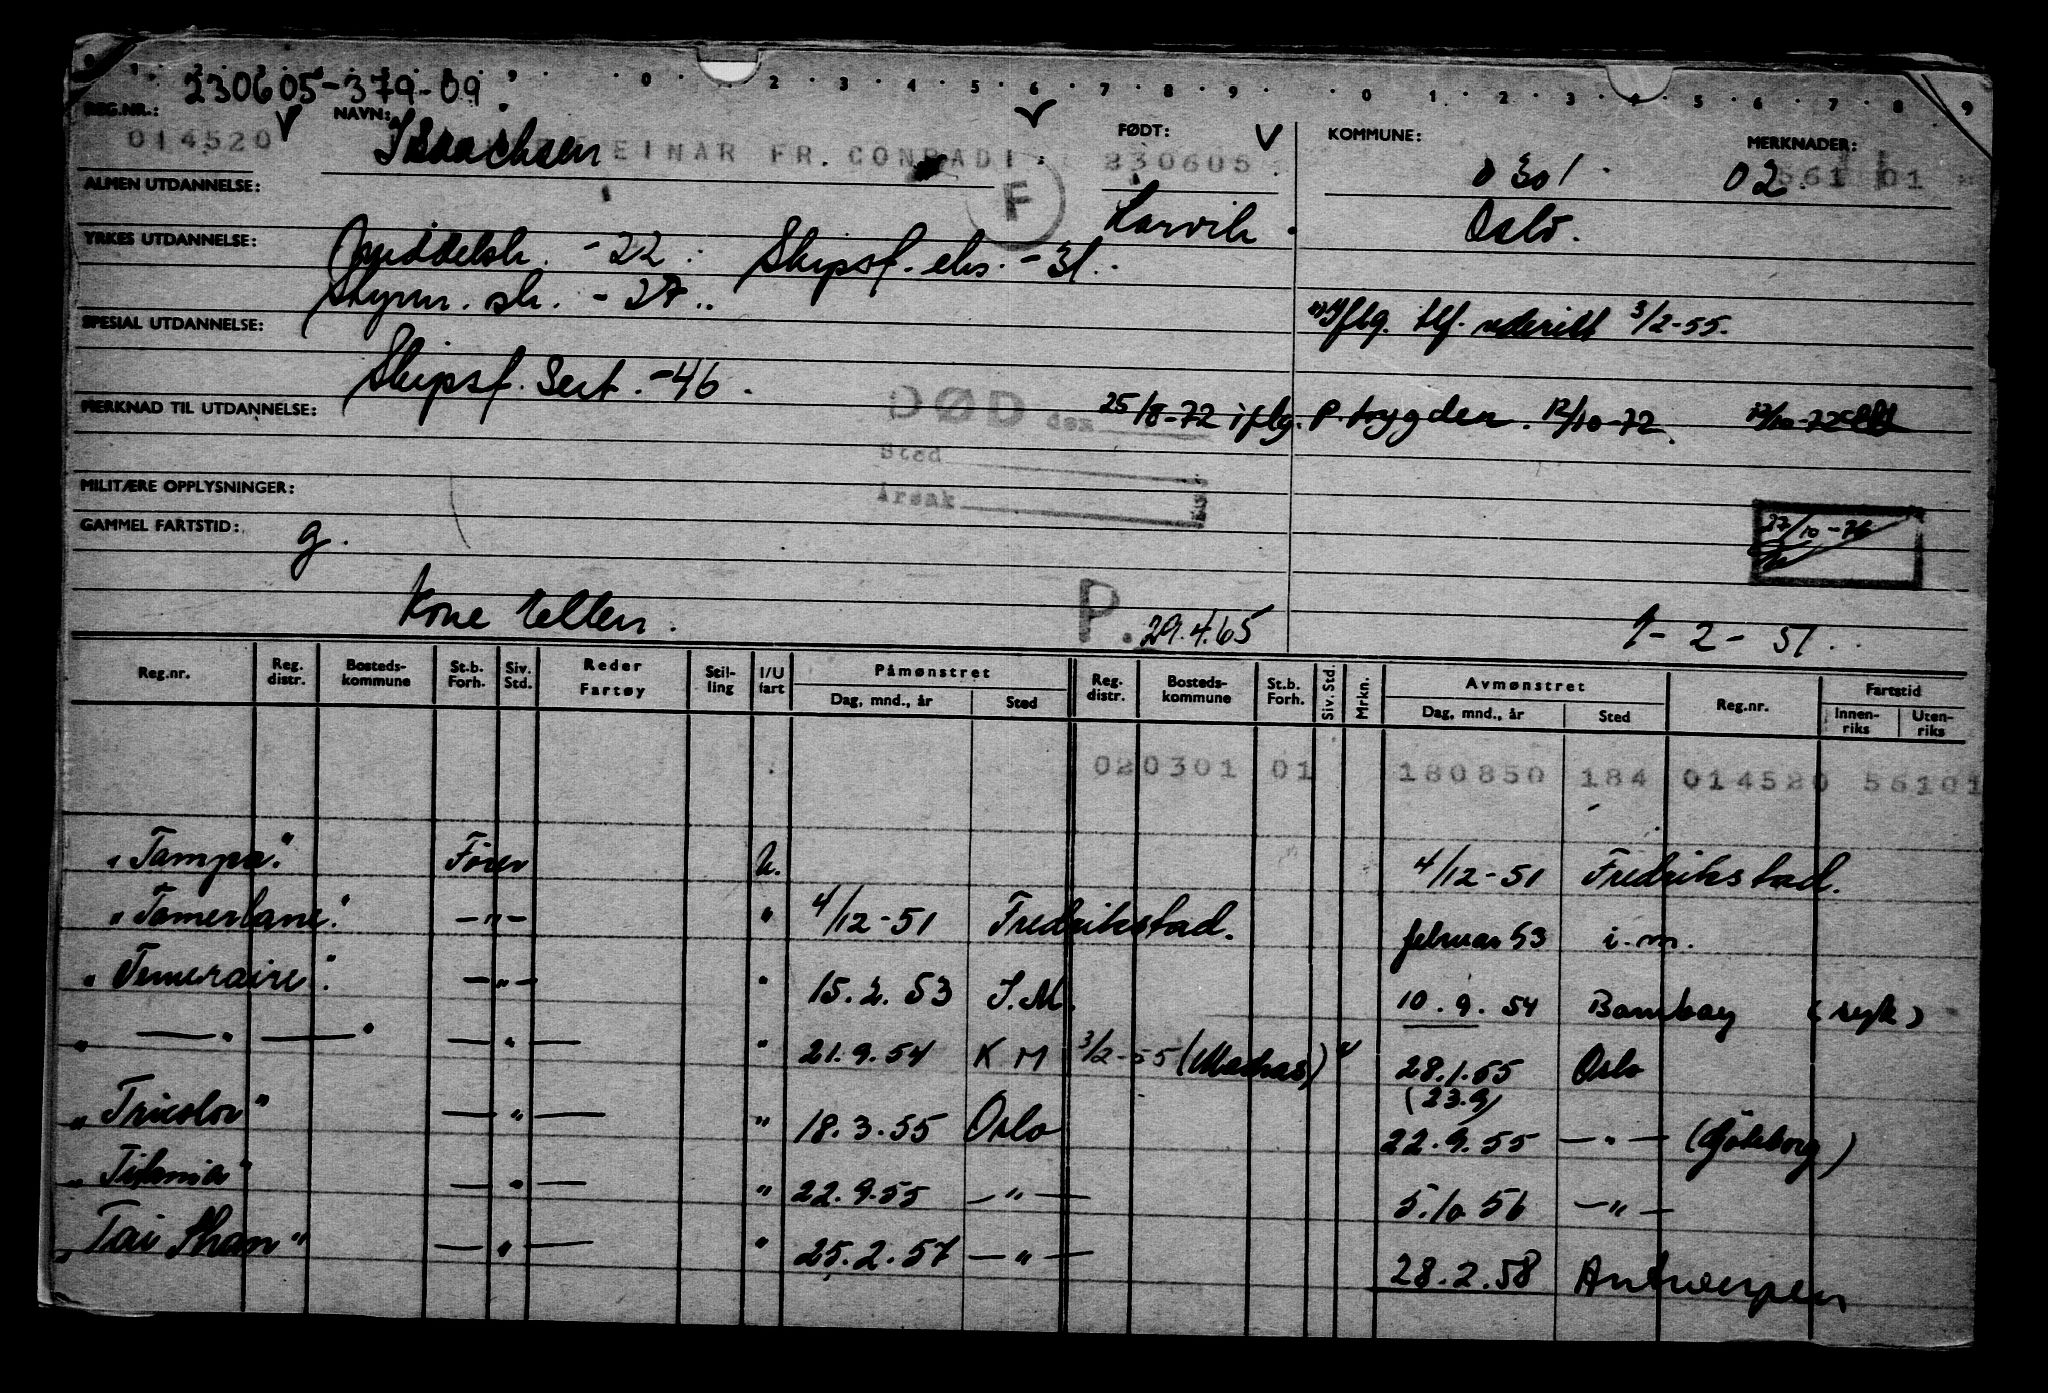 230605-379-09
REG.NR.: NAVN: FØDT: KOMMUNE: MERKNADER:
014520 Isaachsen EINAR FR. CONRADI 230605 0301 02 561 01
ALMEN UTDANNELSE: F Larvik. Oslo.
YRKES UTDANNELSE: Middelsk. -22. Skipsf. eks. -31.
Styrm. sk. -27.
SPESIAL UTDANNELSE: iflg. tlf. rederiet 3/2-55.
Skipsf. Sert. -46.
MERKNAD TIL UTDANNELSE: DØD den 25/8-72 iflg. P. trygden. 12/10-72.
Sted
Årsak
MILITÆRE OPPLYSNINGER:
GAMMEL FARTSTID: g. 27/10-76
Kone Ellen. P. 29.4.65 1-2-51.
Reg.nr. Reg. distr. Bosteds-kommune St.b. Forh. Siv. Std. Reder Fartøy Stil-ling I/U fart Påmønstret Dag, mnd., år Sted Reg. distr. Bosteds-kommune St.b. Forh. Siv. Std. Mrkn. Avmønstret Dag, mnd., år Sted Reg.nr. Fartstid Innen-riks Uten-riks
020301 01 180850 184 014520 56101
"Tampa" Fører U. 4/12-51 Fredrikstad.
"Tamerlane" -"- " 4/12-51 Fredrikstad. februar 53 i.m.
"Temeraire" -"- " 15.2.53 I.M. 10.9.54 Bombay (syk)
" — " — " — " — " 21.9.54 K M 3/2-55 (Madras) 28.1.55 Oslo
(23.9)
"Tricolor" — " — " 18.3.55 Oslo 22.9.55 — " — (Göteborg)
"Titania" — " — " 22.9.55 — " — 5.10 56 — " —
"Tai Shan" — " — " 25.2.57 — " — 28.2.58 Antwerpen